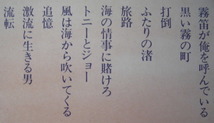 霧笛が俺を呼んでいる
黒い霧の町
打倒
ふたりの渚
旅路
海の情事に賭けろ
トニーとジョー
風は海から吹いてくる
追憶
激流に生きる男
流転